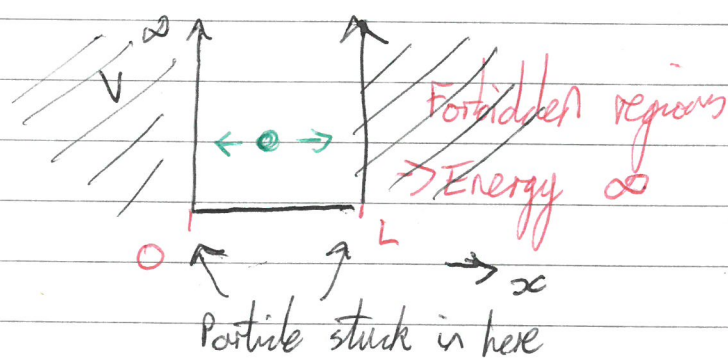 ∞
V
Forbidden regions
→ Energy ∞
O
L
x
Particle stuck in here